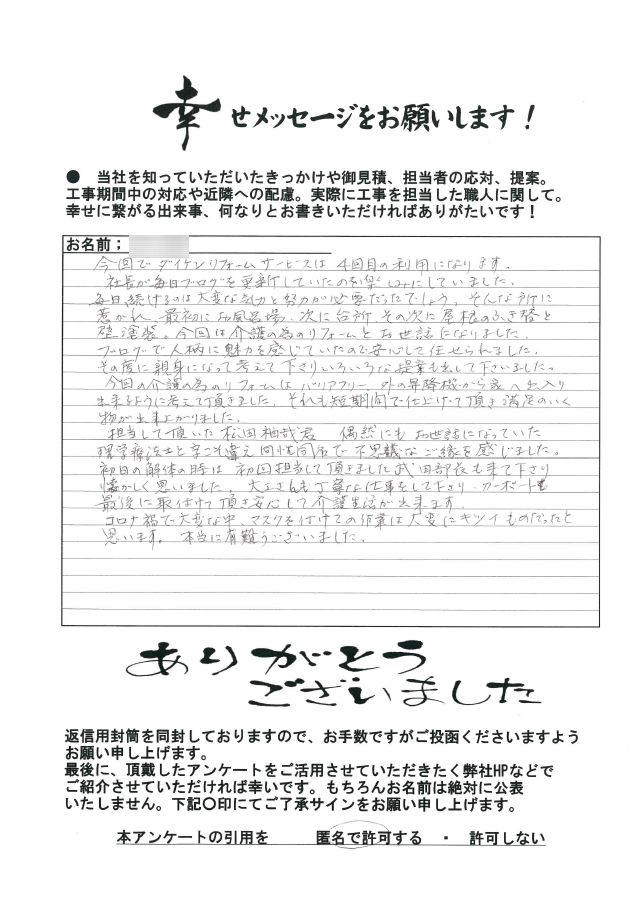 幸せメッセージをお願いします！
● 当社を知っていただいたきっかけや御見積、担当者の応対、提案。
工事期間中の対応や近隣への配慮。実際に工事を担当した職人に関して。
幸せに繋がる出来事、何なりとお書きいただければありがたいです！
お名前；
今回でダイケンリフォームサービスは4回目の利用になります。
社長が毎日ブログを更新していたのを楽しみにしていました。
毎日続けるのは大変な気力と努力が必要だったでしょう、そんな所に
惹かれ、最初にお風呂場、次に台所 その次に屋根のふき替と
壁塗装。今回は介護の為のリフォームとお世話になりました。
ブログで人柄に魅力を感じていたので安心して任せられました。
その度に親身になって考えて下さりいろいろな提案も出して下さいました。
今回の介護の為のリフォームはバリアフリー、外の昇降機から家へ出入り
出来るように考えて頂きました、それも短期間で仕上げて頂き満足のいく
物が出来上がりました。
担当して頂いた松田 君 偶然にもお世話になっていた
理学療法士と字こそ違え同姓同名で不思議なご縁を感じました。
初日の解体の時は 初回担当して頂きました武田部長も来て下さり
懐かしく思いました。大工さんも丁寧な仕事をして下さり カーポートも
最後に取付けて頂き安心して介護生活が出来ます。
コロナ禍で大変な中 マスクを付けての作業は大変にキツイものだったと
思います。本当に有難うございました。
ありがとう
ございました
返信用封筒を同封しておりますので、お手数ですがご投函くださいますよう
お願い申し上げます。
最後に、頂戴したアンケートをご活用させていただきたく弊社HPなどで
ご紹介させていただければ幸いです。もちろんお名前は絶対に公表
いたしません。下記〇印にてご了承サインをお願い申し上げます。
本アンケートの引用を 匿名で許可する ・ 許可しない